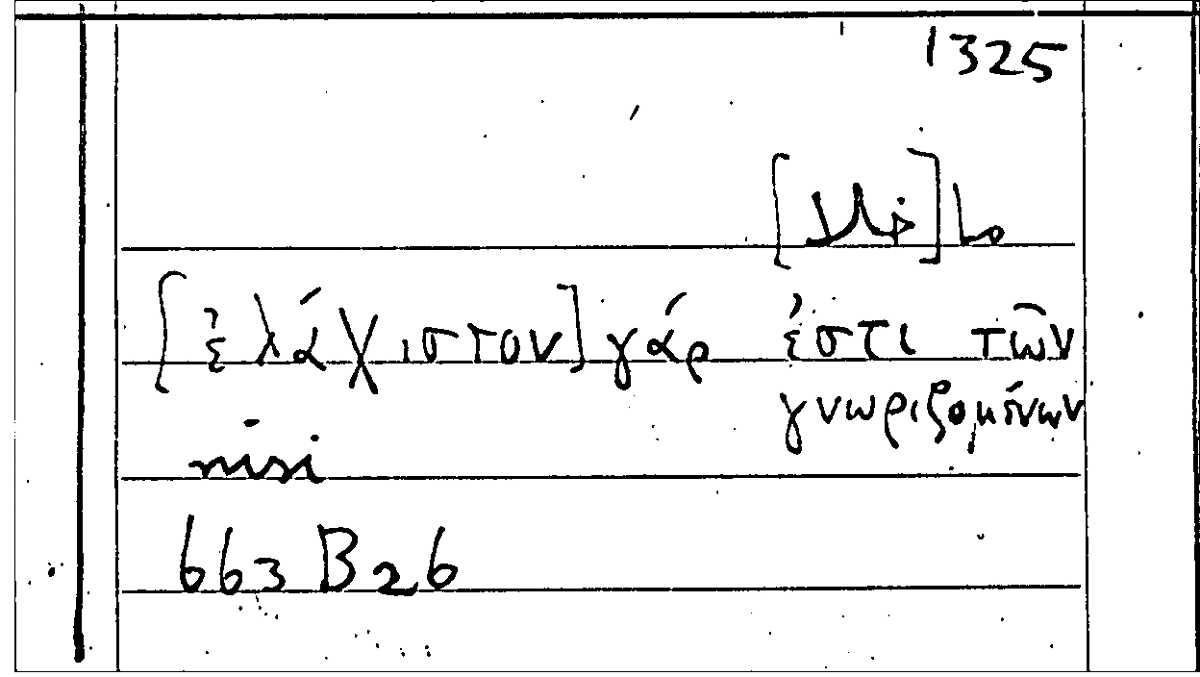 1325
[ἐλάχιστον] γάρ ἐστι τῶν
γνωριζομένων
nisi
663 B 26